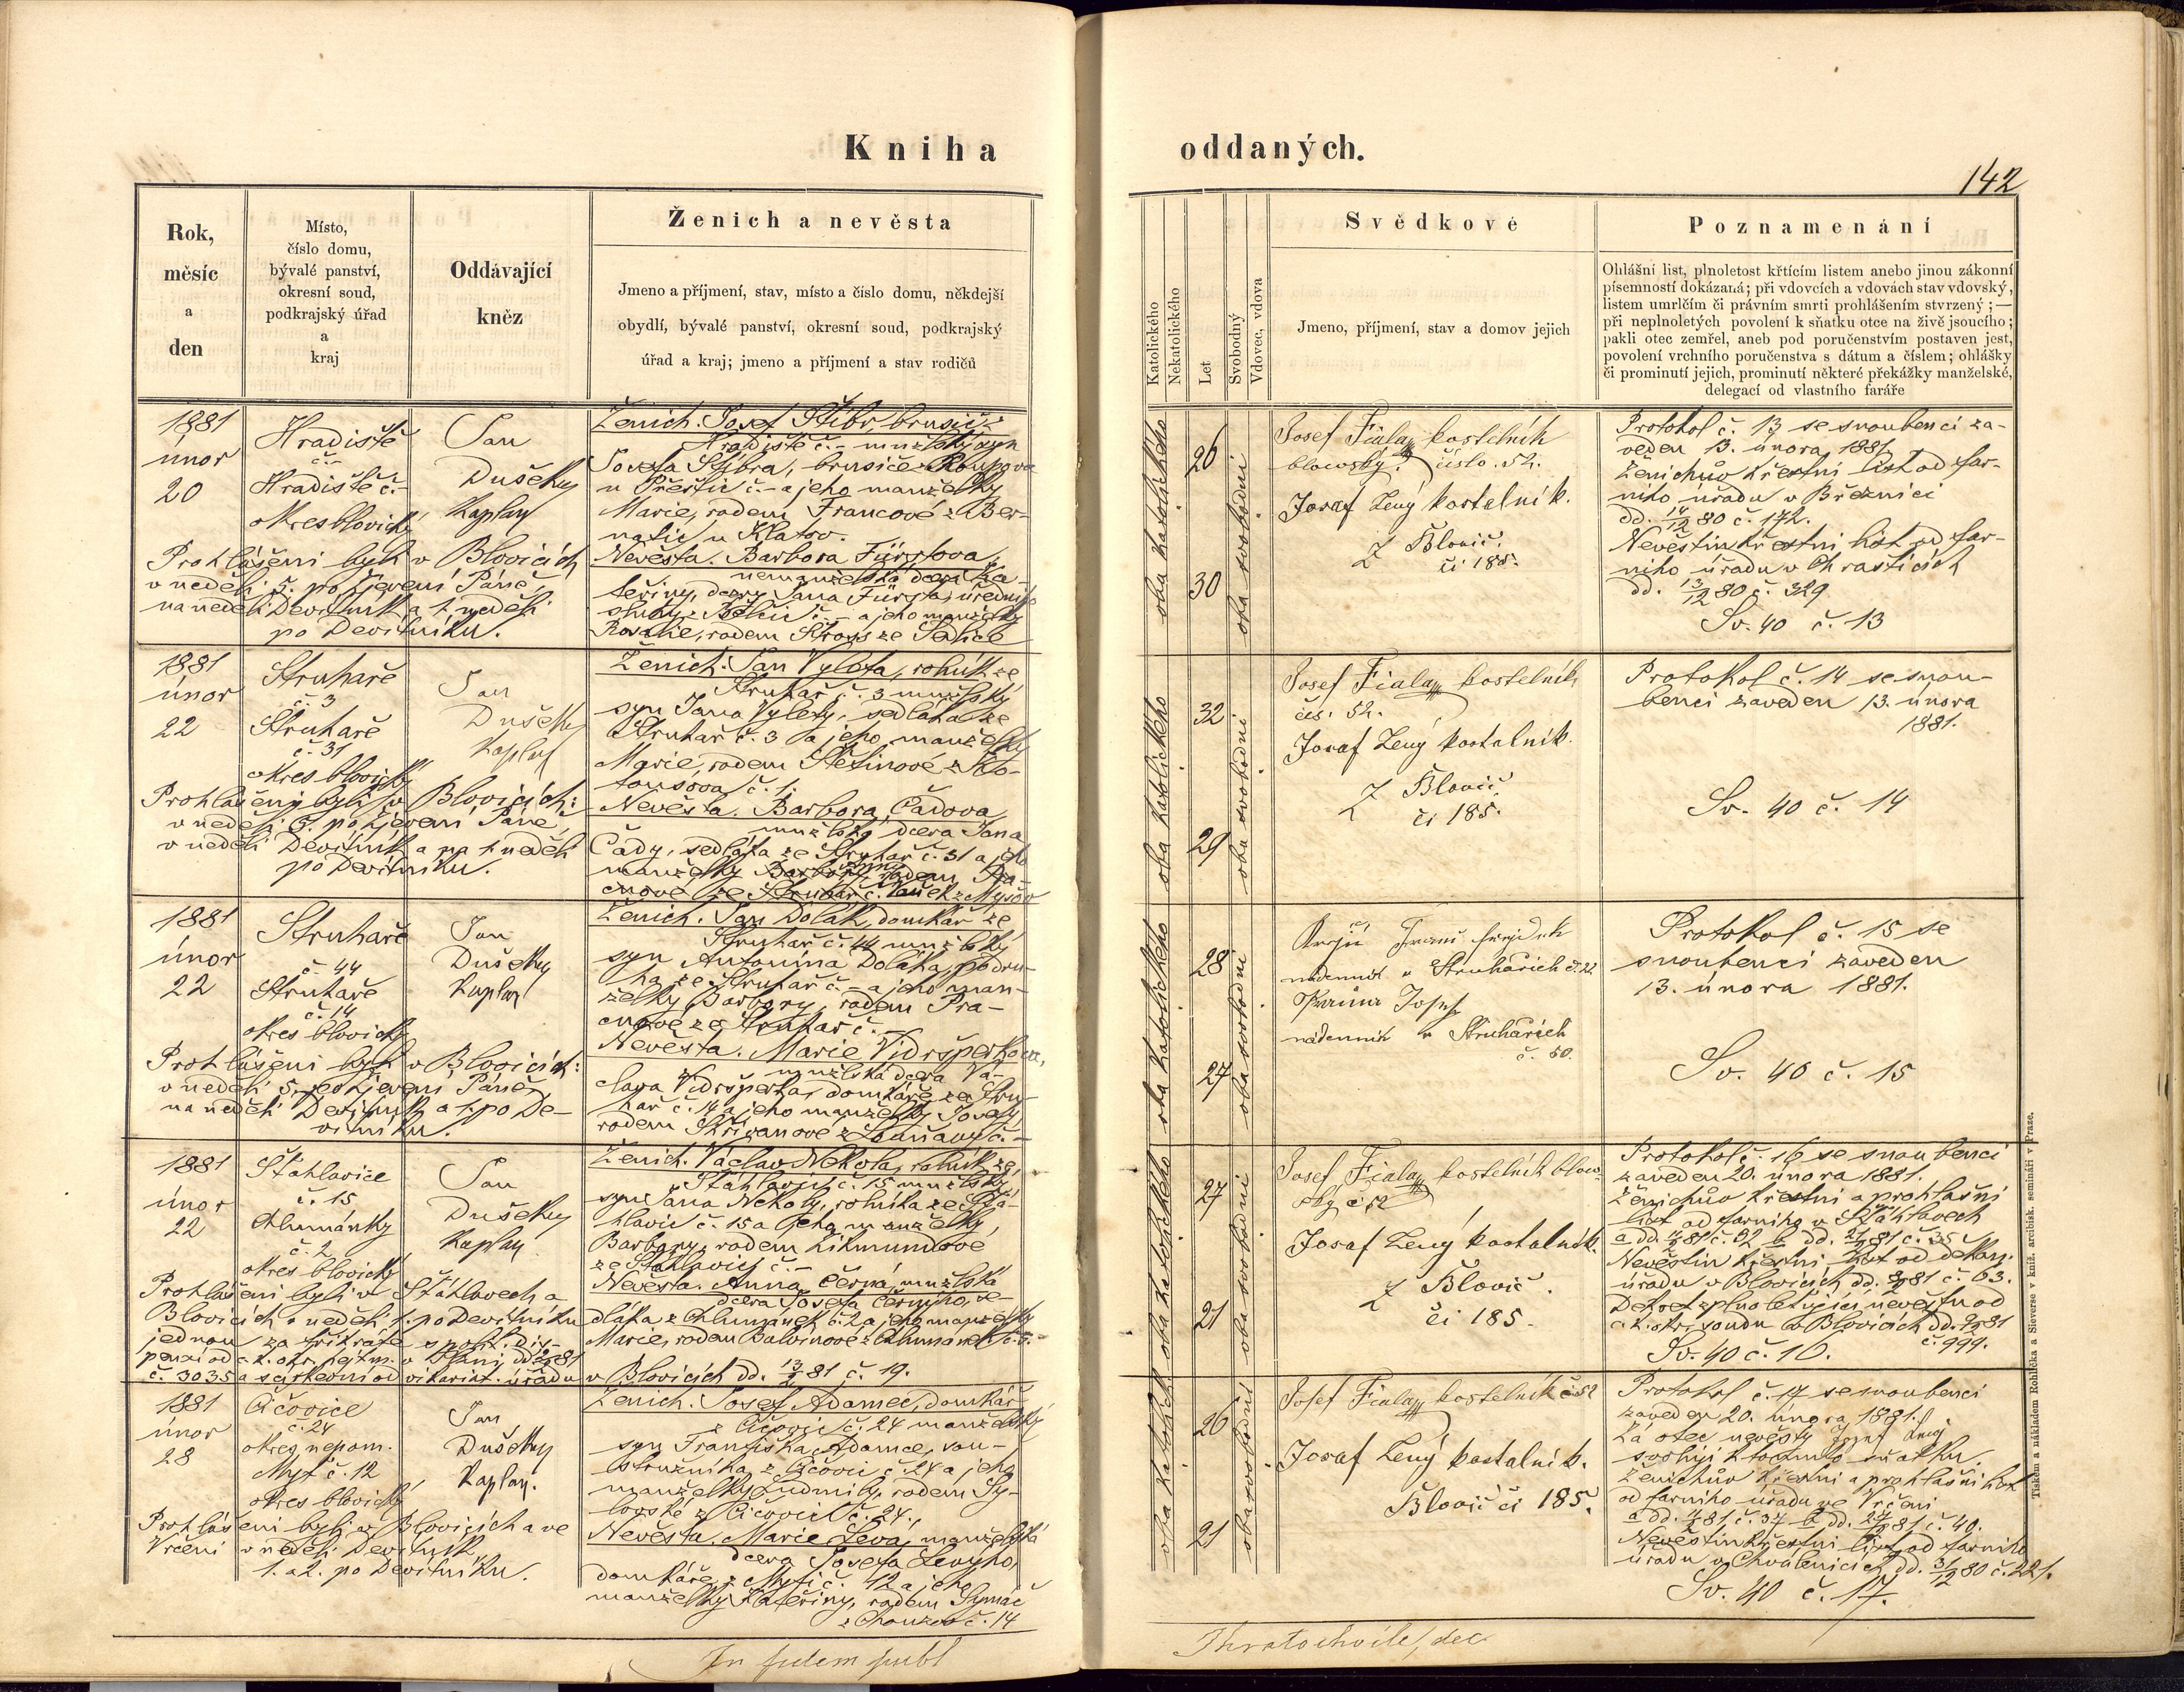 Kniha
oddaných.
142
Rok,
měsíc
a
den
Místo,
číslo domu,
bývalé panství,
okresní soud,
podkrajský úřad
a
kraj
Oddávající
kněz
Ženich a nevěsta
Jmeno a příjmení, stav, místo a číslo domu, někdejší
obydlí, bývalé panství, okresní soud, podkrajský
úřad a kraj; jmeno a příjmení a stav rodičů
Katolického
Nekatolického
Let
Svobodný
Vdovec, vdova
Svědkové
Jmeno, příjmení, stav a domov jejich
Poznamenání
Ohlášní list, plnoletost křtícím listem anebo jinou zákonní
písemností dokázaná; při vdovcích a vdovách stav vdovský,
listem umrlčím či právním smrti prohlášením stvrzený; —
při neplnoletých povolení k sňatku otce na živě jsoucího;
pakli otec zemřel, aneb pod poručenstvím postaven jest,
povolení vrchního poručenstva s dátum a číslem; ohlášky
či prominutí jejich, prominutí některé překážky manželské,
delegací od vlastního faráře
1881
únor
20
Hradiště
č. –
Hradiště č. –
okres blovický
Jan
Dušeky
Kaplan
Prohlášeni byli v Blovicích
v neděli 5. po Zjevení Páně
na neděli Devítník a 1. neděli
po Devítníku.
Ženich: Josef Stibr, brusič z
Hradiště č. – manželský syn
Josefa Stibra, brusiče z Roupova
u Přeštic č. – a jeho manželky
Marie, rodem Francové z Ber-
natic u Klatov.
Nevěsta. Barbora Fürstova,
nemanželská dcera Ka-
teřiny, dcery Jana Fürsta,
a jeho manželky
Rosalie, rodem
oba katolického
26
30
oba svobodni
Josef Fiala kostelník
blowský číslo. 52.
Josef Lený kostelník.
Z Blovic
či 185.
Protokol č. 13 se snoubenci za-
veden 13. února 1881
Ženichův křestní list od far-
ního úřadu v Březnici
dd. 14/12 80 č. 172.
Nevěstin křestní list od far-
ního úřadu v Chrašticích
dd. 13/12 80 č. 329.
Sv. 40 č. 13
1881
únor
22
Struhaře
č. 3
Struhaře
č. 31
okres blovický
Jan
Dušeky
Kaplan
Prohlášeny byli v Blovicích:
v neděli 5. po Zjevení Páně,
v neděli Devítník a na 1. neděli
po Devítníku.
Ženich: Jan Vyleta, rolník ze
Struhař č. 3 manželský
syn Jana Vylety, sedláka ze
Struhař č. 3 a jeho manželky
Marie, rodem Štetinové z Klo-
tousova č. 1.
Nevěsta. Barbora Čadova,
manželská dcera Jana
Čady, sedláka ze Struhař č. 31 a jeho
manželky Barbory, rodem
oba katolického
32
29
oba svobodni
Josef Fiala kostelník
čís. 52.
Josef Lený kostelník.
Z Blovic
či 185.
Protokol č. 14 se snou-
benci zaveden 13. února
1881.
Sv. 40 č. 14
1881
únor
22
Struhaře
č. 44
Struhaře
č. 14
okres blovický
Jan
Dušeky
Kaplan
Prohlášeni byli v Blovicích:
v neděli 5. po Zjevení Páně,
na neděli Devítník a 1. po De-
vítníku.
Ženich. Jan Dolák, domkář ze
Struhař č. 44 manželský
syn Antonína Doláka, podru-
ha ze Struhař č. – a jeho man-
želky Barbory, rodem Pra-
cnové ze Struhař č. –
Nevěsta. Marie Vidršperkova,
manželská dcera Vá-
clava Vidršperka, domkáře ze Stru-
hař č. 14 a jeho manželky Josefy
rodem Skřivanové z Louňavy č. –
oba katolického
28
27
oba svobodni
nádenník v Struhařich č. 22
Josef
nádenník v Struhařich
č. 50.
Protokol č. 15 se
snoubenci zaveden
13. února 1881.
Sv. 40 č. 15
1881
únor
22
Šťahlavice
č. 15
Chlumánky
č. 2
okres blovický
Jan
Dušeky
Kaplan
Prohlášeni byli v Šťáhlavech a
Blovicích v neděli 1. po Devítníku
jednou za třikráte s polit. dis-
pensí od c. k. okr. hejtm. v Plzni dd. 81
č. 3035 a od vikariat. úřadu v Blovicích dd. 13/2 81 č. 19.
Ženich. Václav Nekola, rolník ze
Šťáhlavic č. 15 manželský
syn Jana Nekoly, rolníka ze Štá-
hlavic č. 15 a jeho manželky,
Barbory, rodem Zikmundové
ze Štahlavic č. –
Nevěsta. Anna Černá, manželská
dcera Josefa Černýho, se-
dláka z Chlumánek č. 2 a jeho manželky
Marie, rodem Balvinové z Chlumánek č. 5.
oba katolického
27
21
oba svobodni
Josef Fiala kostelník blow-
ský či 52
Josef Lený kostelník.
Z Blovic.
či 185.
Protokol č. 16 se snoubenci
zaveden 20. února 1881.
Ženichův křestní a prohlašní
list od farního v Šťáhlavech
Nevěstin křestní list od děkan.
úřadu v Blovicích dd. 81 č. 63.
Dekret zplnoletňující nevěstu od
c. k. okr. soudu v Blovicích dd. 81
č. 999.
Sv. 40 č. 16.
1881
únor
28
Čičovice
č. 24
okres nepom.
Mýť č. 12
okres blovický
Jan
Dušeky
Kaplan.
Prohlášeni byli v Blovicích a ve
Vrčeni v neděli Devítník,
1. a 2. po Devítníku.
Ženich: Josef Adamec, domkář
z Čičovic č. 24 manželský
syn Františka Adamce, sou-
stružníka z Čičovic č. 24 a jeho
manželky Ludmily, rodem Sy-
lovské z Čičovic č. 24.
Nevěsta. Marie Levá, manželská
dcera Josefa Levýho,
domkáře z Mýti č. 12 a jeho
manželky Kateřiny, rodem Symač
z Chouzov č. 14
oba katolické
26
21
oba svobodni
Josef Fiala kostelník č 52
Josef Lený kostelník.
Blovic či 185.
Protokol č. 17 se snoubenci
zaveden 20. února 1881.
Já otec nevěsty Josef Levý
svoluji k tomuto sňatku.
Ženichův křestní a prohlašní list
od farního úřadu ve Vrčeni
a dd. 81 č. 37 b dd. 27/2 81 č. 40.
Nevěstin křestní list od farního
úřadu v Chválenicích dd. 31/12 80 č. 221.
Sv. 40 č. 17.
In fidem publ
Thratochvile, dec
Tiskem a nákladem Rohlíčka a Sieverse v kníž. arcibisk. semináři v Praze.